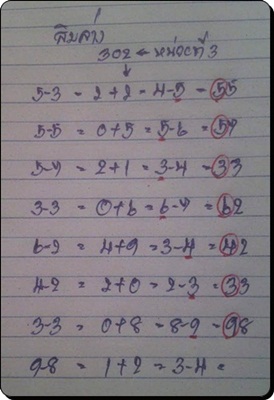 สิบล่าง
302 ← หน่วยที่3
↓
5-3 = 2+2 = 4-5 = 55
5-5 = 0+5 = 5-6 = 57
5-7 = 2+1 = 3-4 = 33
3-3 = 0+6 = 6-7 = 62
6-2 = 4+9 = 3-4 = 42
4-2 = 2+0 = 2-3 = 33
3-3 = 0+8 = 8-9 = 98
9-8 = 1+2 = 3-4 =